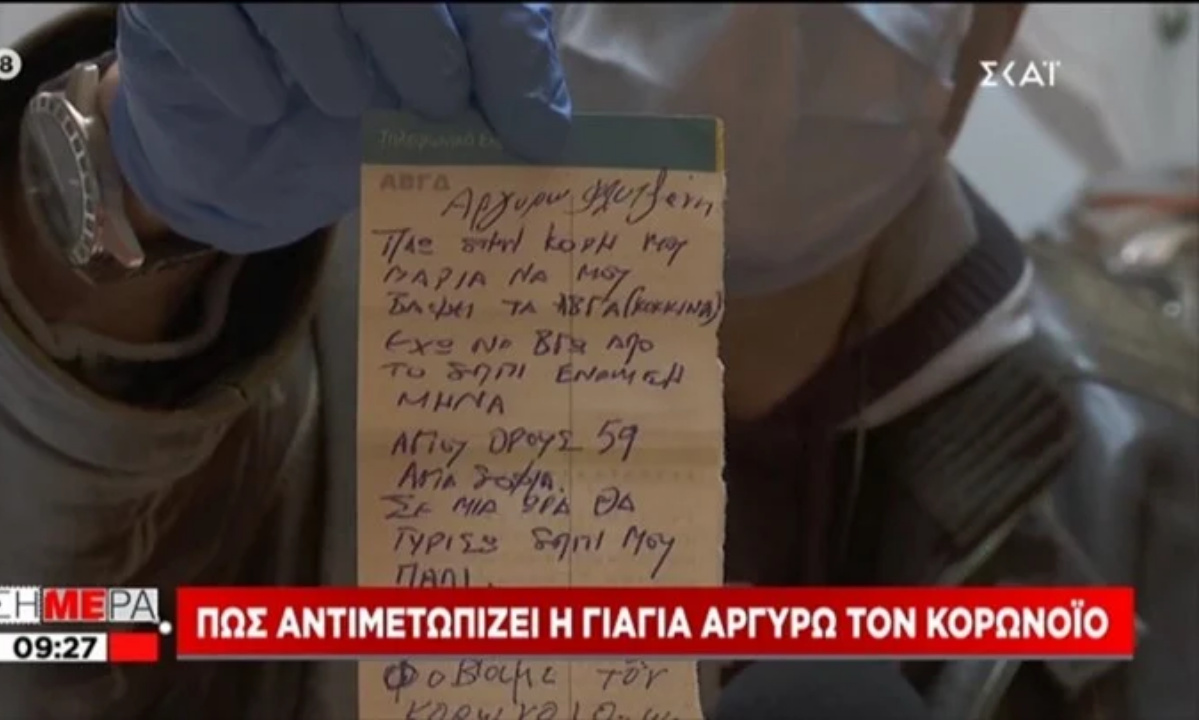 8
ΣΚΑΪ
Τηλεφωνικό
ΑΒΓΔ
Αργυρω
ΠΑΩ ΣΤΗΝ ΚΟΡΗ ΜΟΥ
ΜΑΡΙΑ ΝΑ ΜΟΥ
ΒΑΨΕΙ ΤΑ ΑΒΓΑ (ΚΟΚΚΙΝΑ)
ΕΧΩ ΝΑ ΒΓΩ ΑΠΟ
ΤΟ ΣΠΙΤΙ ΕΝΑΜΙΣΗ
ΜΗΝΑ
ΑΓΙΟΥ ΟΡΟΥΣ 59
ΑΓΙΑ ΣΟΦΙΑ.
ΣΕ ΜΙΑ ΩΡΑ ΘΑ
ΓΥΡΙΣΩ ΣΠΙΤΙ ΜΟΥ
ΠΑΛΙ.
ΣΗΜΕΡΑ
09:27
ΠΩΣ ΑΝΤΙΜΕΤΩΠΙΖΕΙ Η ΓΙΑΓΙΑ ΑΡΓΥΡΩ ΤΟΝ ΚΟΡΩΝΟΪΟ
Φοβαμε τον